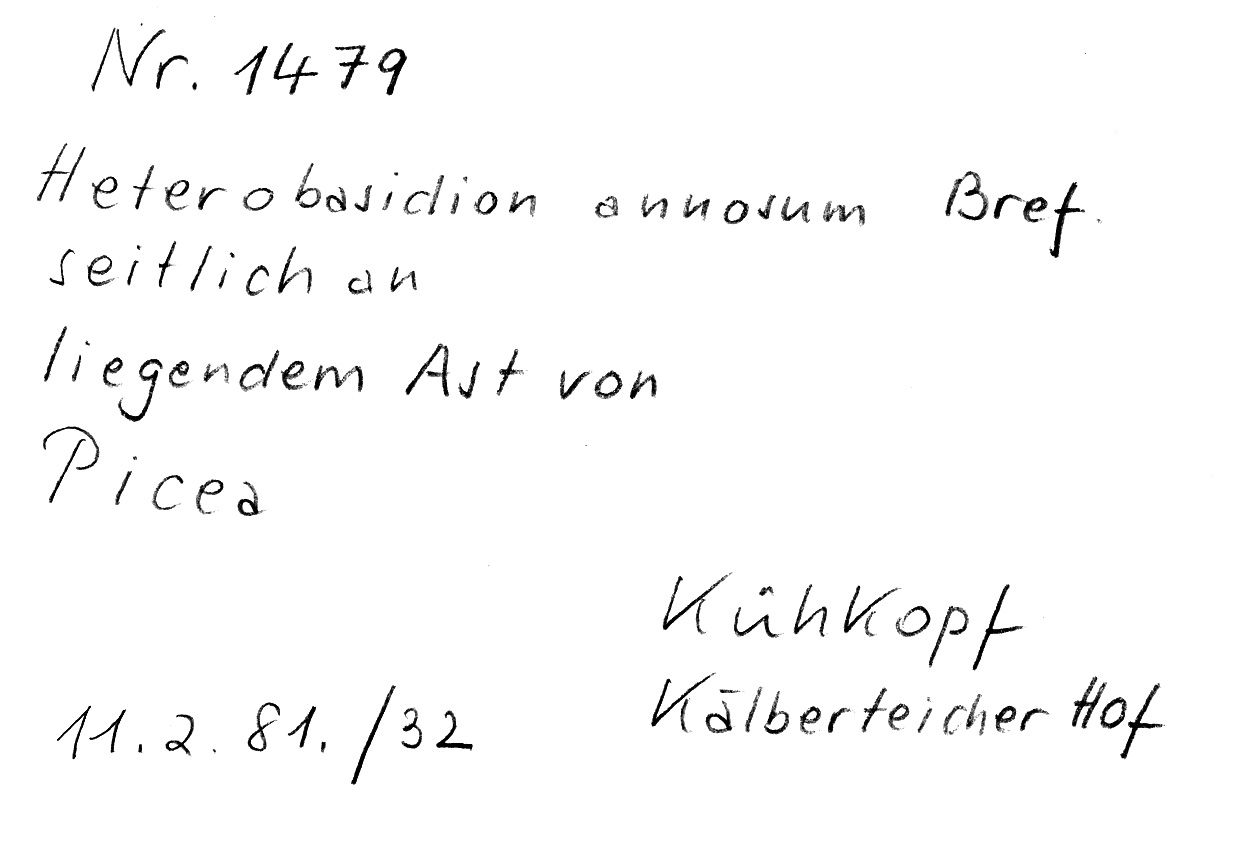 Nr. 1479
Heterobasidion annosum Bref.
seitlich an
liegendem Ast von
Picea
Kühkopf
Kälberteicher Hof
11.2.81./32